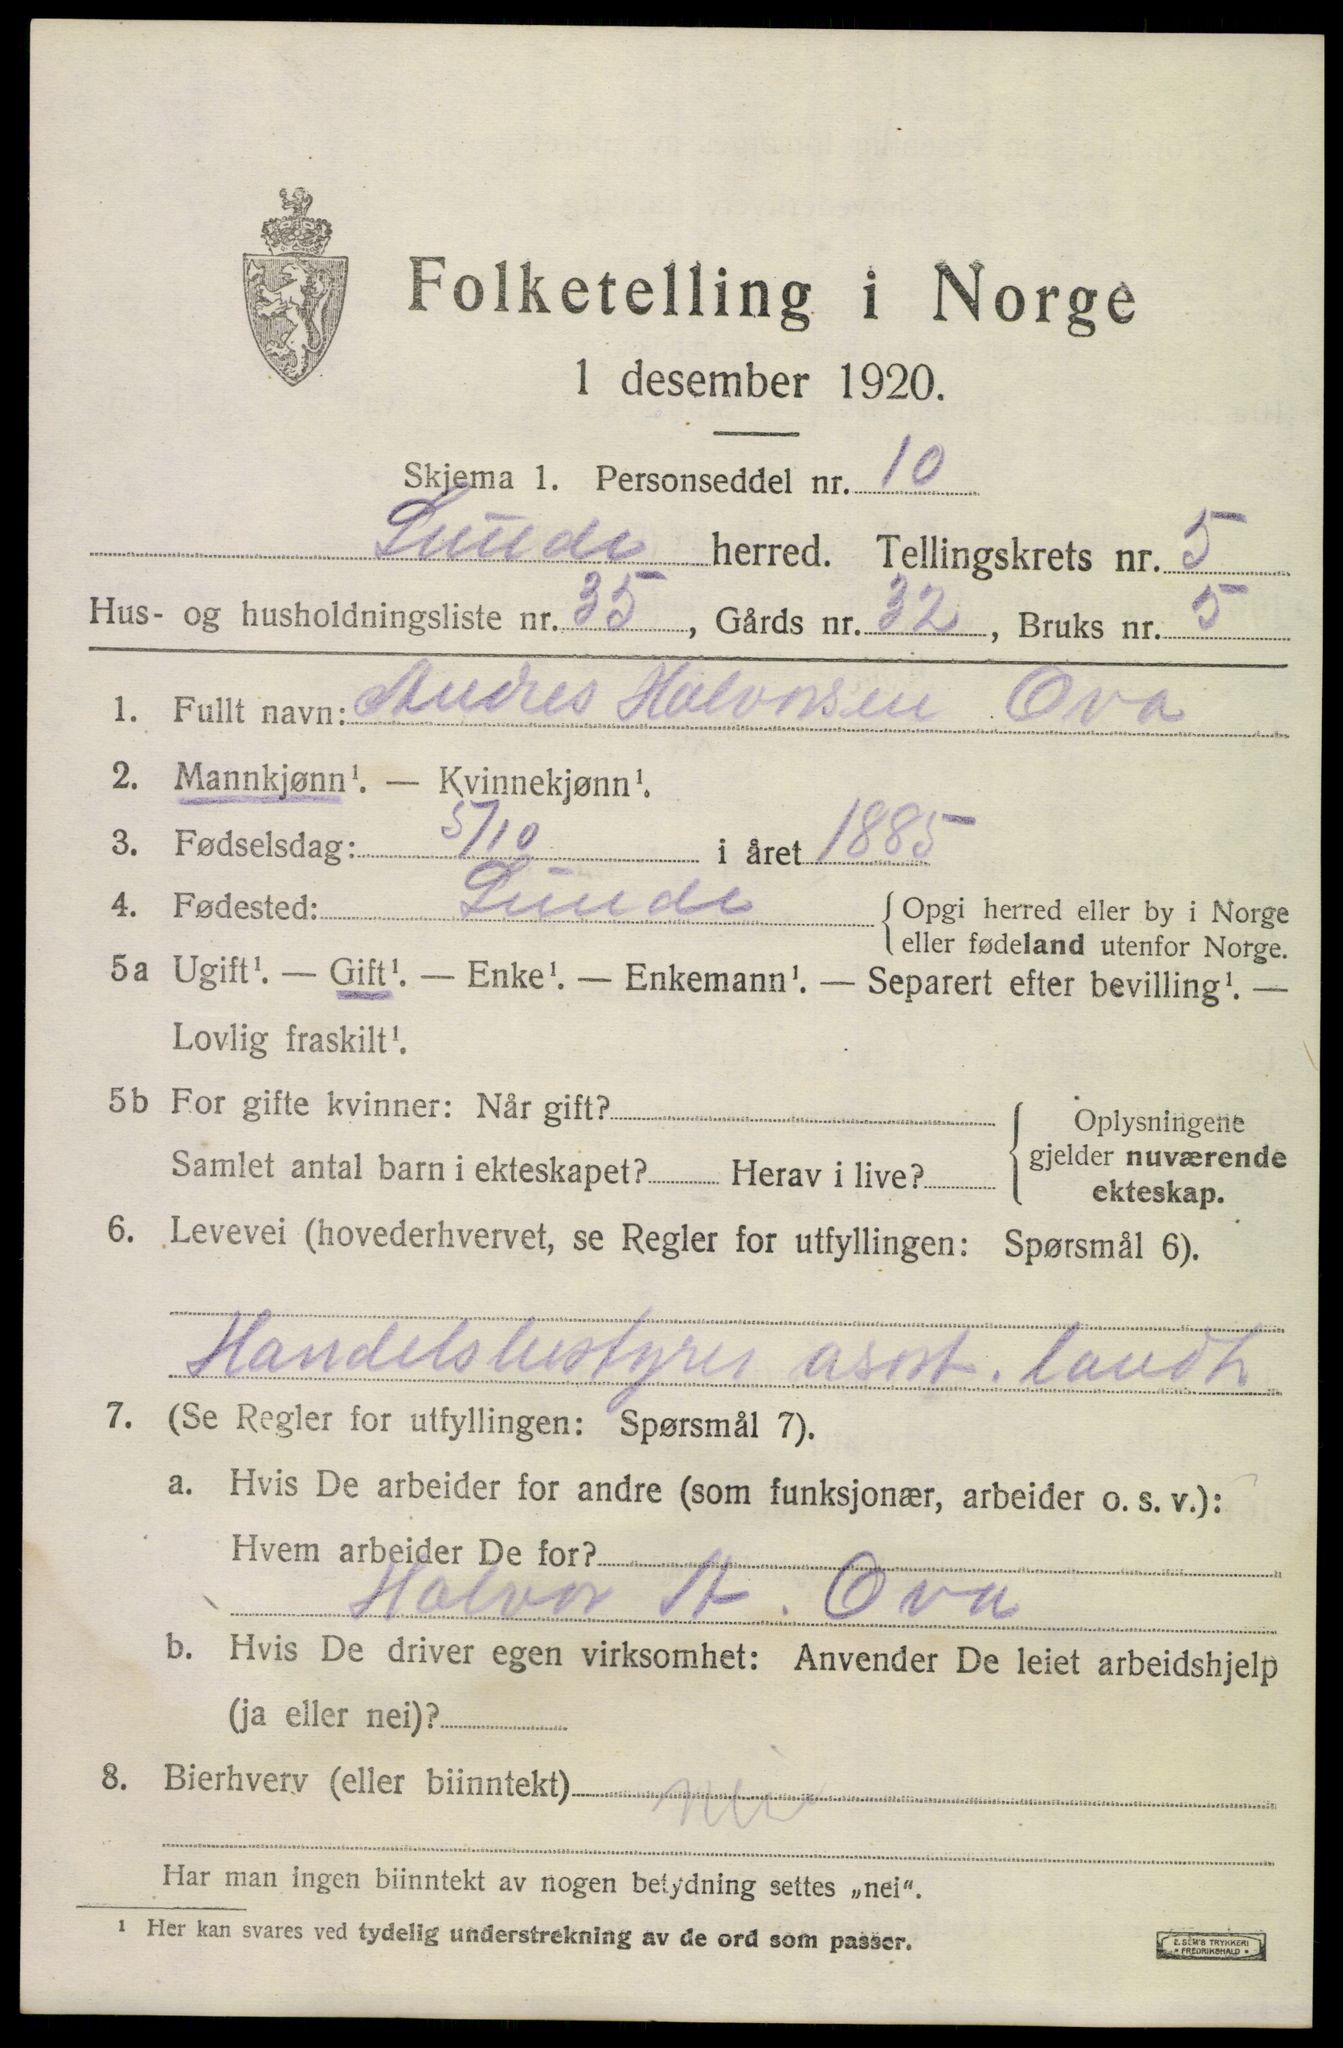 Folketelling i Norge
1 desember 1920.
Skjema 1. Personseddel nr. 10
Lunde herred. Tellingskrets nr. 5
Hus- og husholdningsliste nr. 35, Gårds nr. 32, Bruks nr. 5
1. Fullt navn: Andres Halvorsen Ova
2. Mannkjønn¹. — Kvinnekjønn¹.
3. Fødselsdag: 5/10 i året 1885
4. Fødested: Lunde { Opgi herred eller by i Norge
eller fødeland utenfor Norge.
5a Ugift¹. — Gift¹. — Enke¹. — Enkemann¹. — Separert efter bevilling¹. —
Lovlig fraskilt¹.
5b For gifte kvinner: Når gift? { Oplysningene
gjelder nuværende
Samlet antal barn i ekteskapet? Herav i live? ekteskap.
6. Levevei (hovederhvervet, se Regler for utfyllingen: Spørsmål 6).
Handelsbestyrer asort. landh
7. (Se Regler for utfyllingen: Spørsmål 7).
a. Hvis De arbeider for andre (som funksjonær, arbeider o. s. v.):
Hvem arbeider De for?
Halvor A. Ova
b. Hvis De driver egen virksomhet: Anvender De leiet arbeidshjelp
(ja eller nei)?
8. Bierhverv (eller biinntekt) nei
Har man ingen biinntekt av nogen betydning settes „nei“.
¹ Her kan svares ved tydelig understrekning av de ord som passer.
E. SEM'S TRYKKERI
• FREDRIKSHALD •